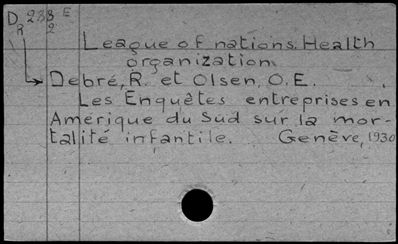 D 233 E
R 2
League of nations. Health
organization
Debré, R. et Olsen, O.E.
Les Enquêtes entreprises en
Amérique du Sud sur la mor-
talité infantile. Genève, 1930